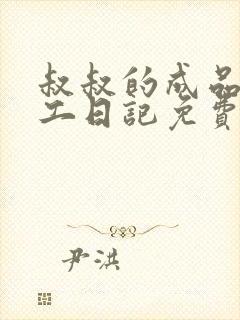 叔叔的成品
工日記免費
尹洪